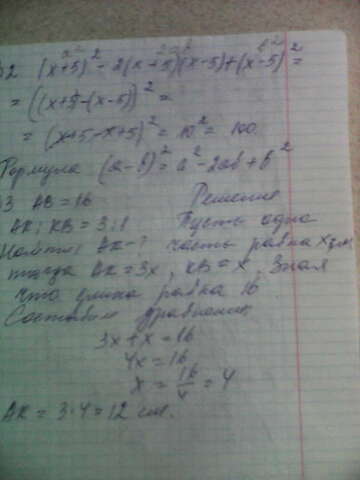 a² 2ab b²
2 (x+5)² - 2(x+5)(x-5)+(x-5)² =
= ((x+5)-(x-5))² =
= (x+5-x+5)² = 10² = 100.
Формула (a-b)² = a² - 2ab + b²
3 AB = 16 Решение
AK : KB = 3:1 Пусть одна
Найти: AK-? часть равна x см,
тогда AK = 3x, KB = x. Зная
что длина равна 16
Составим уравнение
3x + x = 16
4x = 16
x = 16/4 = 4
AK = 3·4 = 12 см.